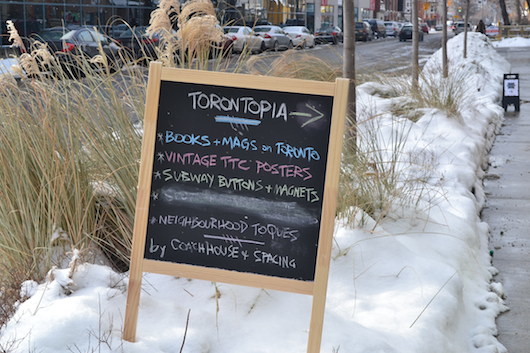 TORONTOPIA →
* BOOKS + MAGS on TORONTO
* VINTAGE TTC POSTERS
* SUBWAY BUTTONS + MAGNETS
*
* NEIGHBOURHOOD TOQUES
by COACH HOUSE & SPACING